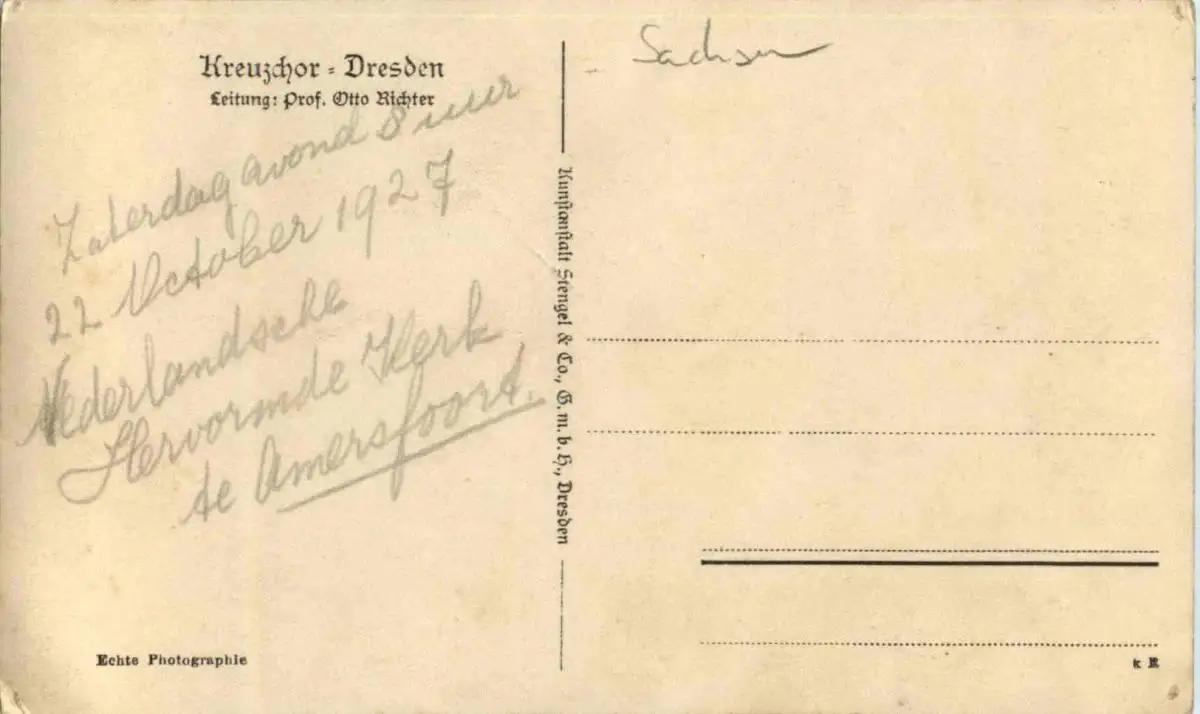 Kreuzchor - Dresden
Leitung: Prof. Otto Richter
Zaterdag avond 8 uur
22 October 1927
Nederlandsche
Hervormde Kerk
te Amersfoort.
Echte Photographie
Kunstanstalt Stengel & Co., G. m. b. H., Dresden
Sachsen
k R